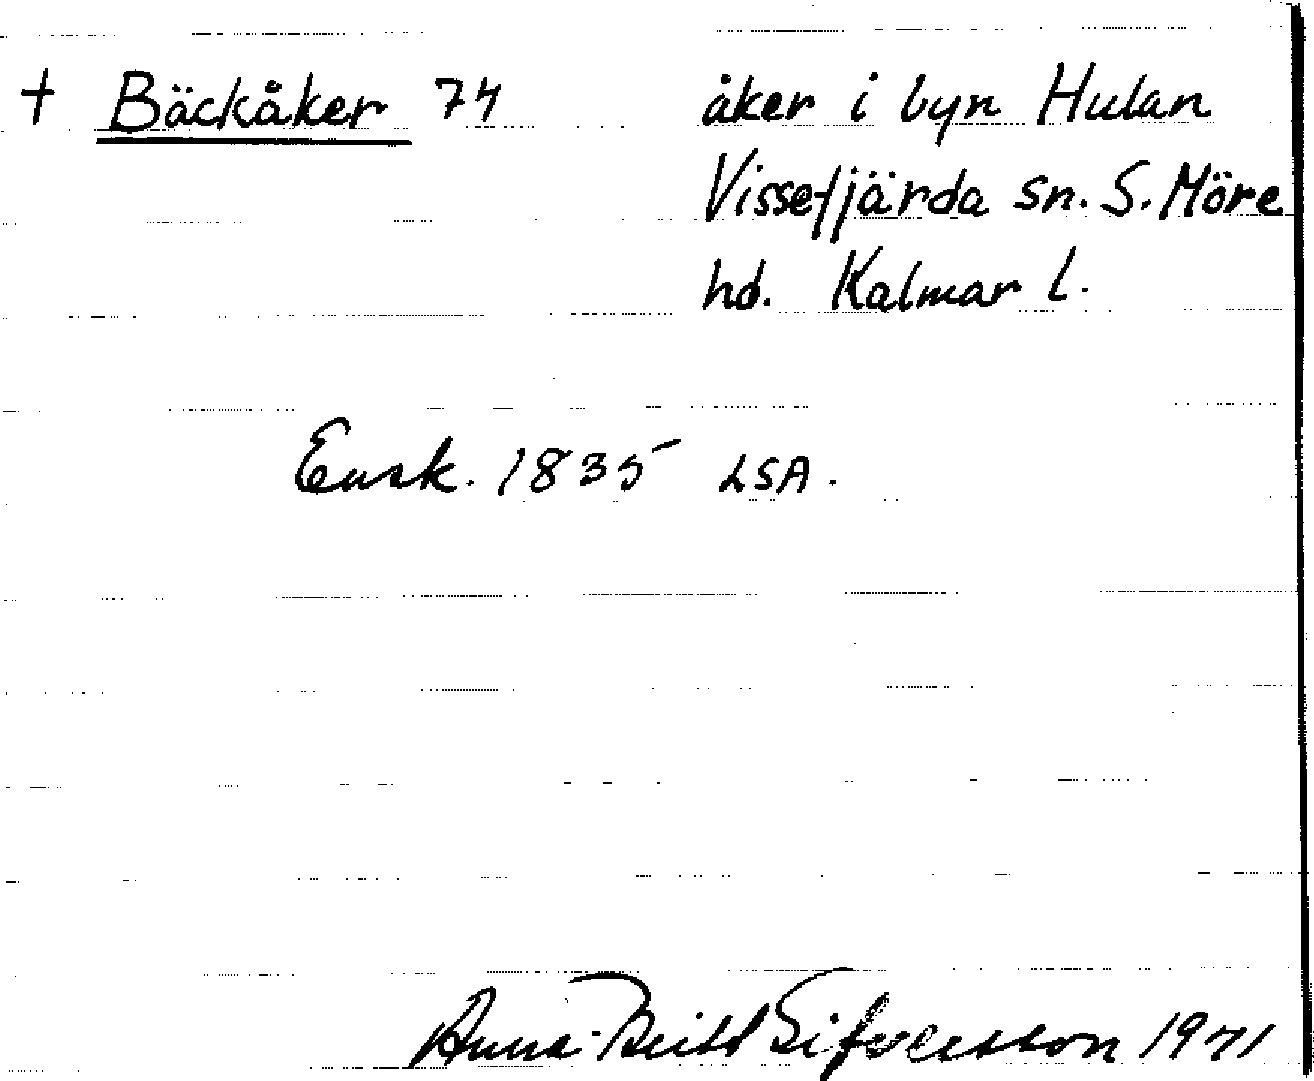 † Bäckåker 74 åker i byn Hulan
Vissefjärda sn. S. Möre
hd. Kalmar l.
Ensk. 1835 LSA.
Anna-Britt Sifvertsson 1971